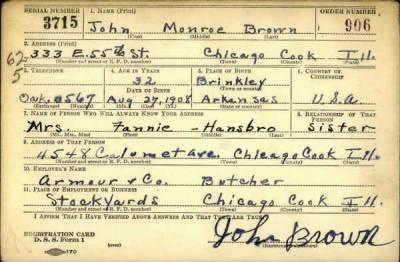 SERIAL NUMBER 1. NAME (Print) ORDER NUMBER
3715 John Monroe Brown 906
(First) (Middle) (Last)
2. ADDRESS (Print)
625
333 E. 55th St. Chicago Cook Ill.
(Number and street or R. F. D. number) (Town) (County) (State)
3. TELEPHONE 4. AGE IN YEARS 5. PLACE OF BIRTH 6. COUNTRY OF CITIZENSHIP
32 Brinkley
DATE OF BIRTH (Town or county)
Oak. 0567 Aug 27, 1908 Arkansas U.S.A
(Exchange) (Number) (Mo.) (Day) (Yr.) (State or country)
7. NAME OF PERSON WHO WILL ALWAYS KNOW YOUR ADDRESS 8. RELATIONSHIP OF THAT PERSON
Mrs. Fannie - Hansbro Sister
(Mr., Mrs., Miss) (First) (Middle) (Last)
9. ADDRESS OF THAT PERSON
4548 Calumet ave. Chicago Cook Ill.
(Number and street or R. F. D. number) (Town) (County) (State)
10. EMPLOYER'S NAME
Armour & Co. Butcher
11. PLACE OF EMPLOYMENT OR BUSINESS
Stock Yards Chicago Cook Ill.
(Number and street or R. F. D. number) (Town) (County) (State)
I AFFIRM THAT I HAVE VERIFIED ABOVE ANSWERS AND THAT THEY ARE TRUE.
REGISTRATION CARD
D. S. S. Form 1
John Brown